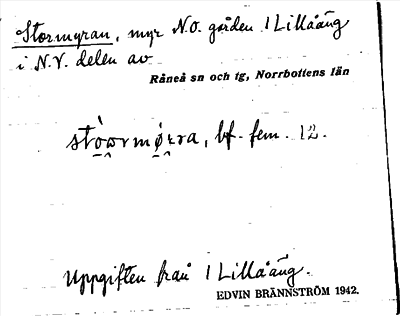 Stormyran, myr N.O. gården 1 Lillåäng
i N.V. delen av
Råneå sn och tg, Norrbottens län
bf. fem. 12.
Uppgiften från 1 Lillåäng.
EDVIN BRÄNNSTRÖM 1942.